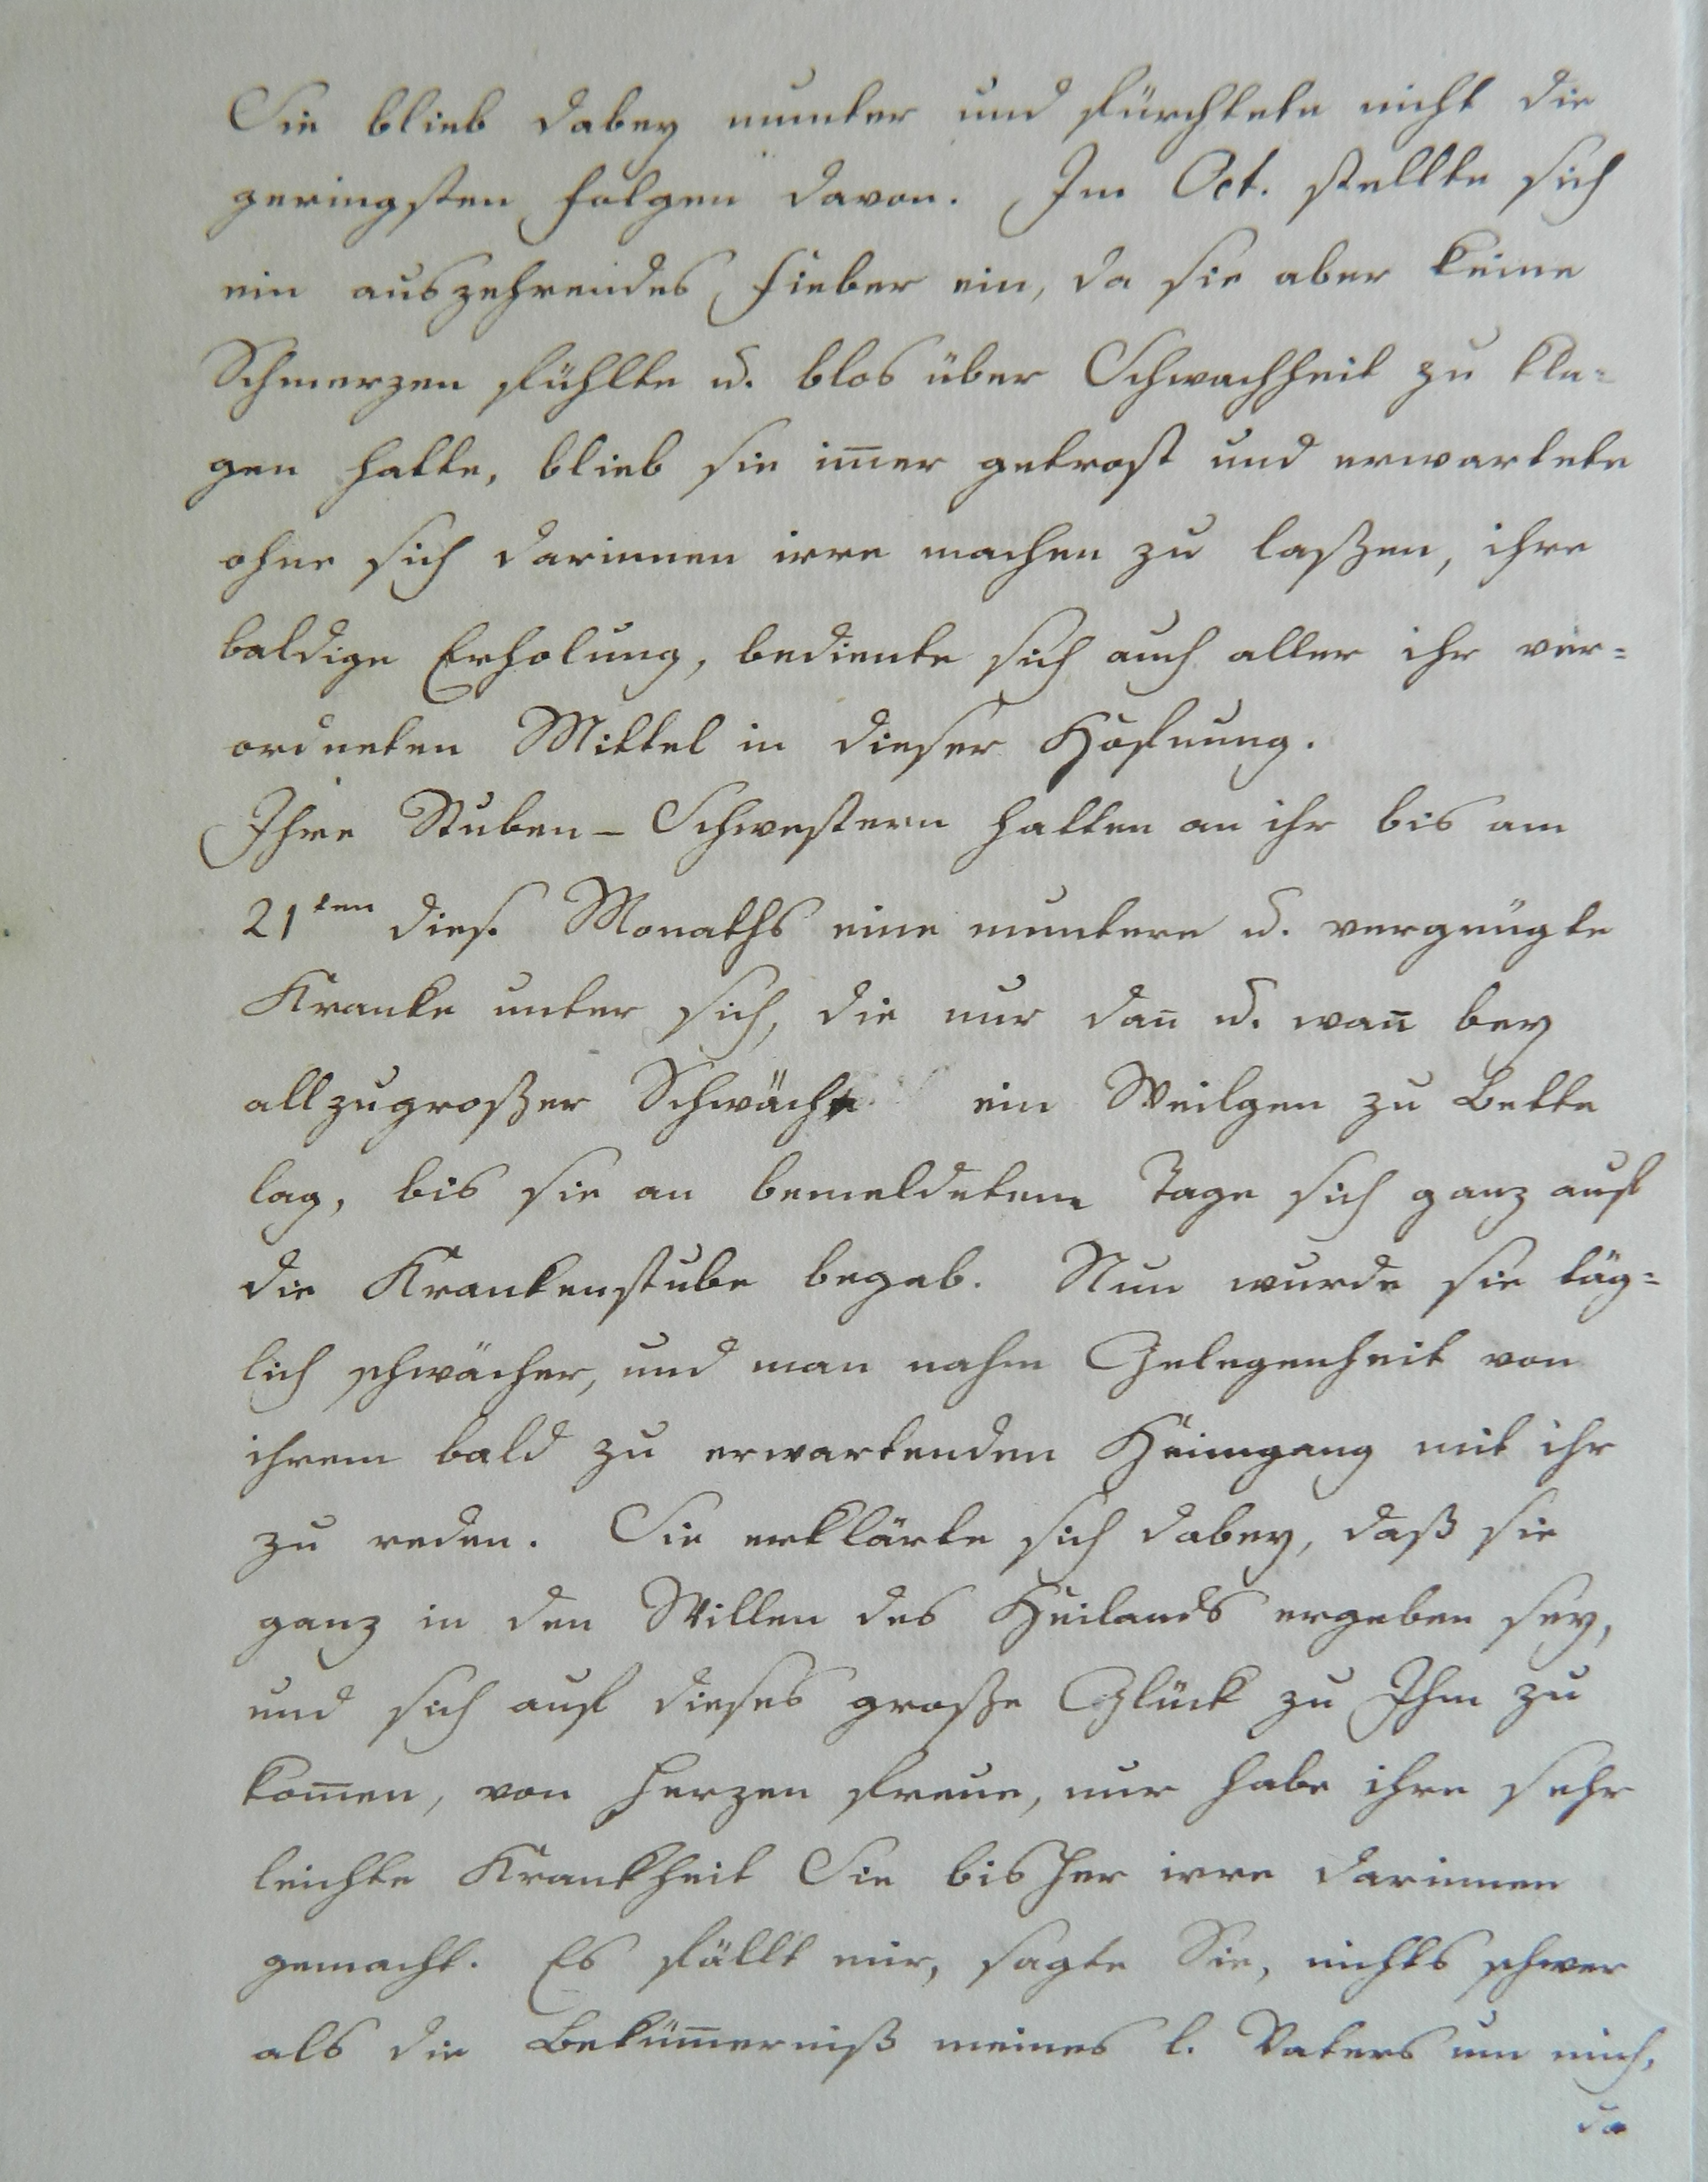 Sie blieb dabey munter und fürchtete nicht die
geringsten Folgen davon. Im Oct. stellte sich
ein auszehrendes Fieber ein, da sie aber keine
Schmerzen fühlte u. blos über Schwachheit zu kla-
gen hatte, blieb sie im̅er getrost und erwartete
ohne sich darinnen irre machen zu laßen, ihre
baldige Erholung, bediente sich auch aller ihr ver-
ordneten Mittel in dieser Hofnung.
Ihre Stuben-Schwestern hatten an ihr bis am
21ten dies. Monaths eine muntere u. vergnügte
Kranke unter sich, die nur dan̅ u. wan̅ bey
allzugroßer Schwäche ein Weilgen zu Bette
lag, bis sie an bemeldetem Tage sich ganz auf
die Krankenstube begab. Nun wurde sie täg-
lich schwächer, und man nahm Gelegenheit von
ihrem bald zu erwartenden Heimgang mit ihr
zu reden. Sie erklärte sich dabey, daß sie
ganz in den Willen des Heilands ergeben sey,
und sich auf dieses große Glück zu Ihm zu
kom̅en, von Herzen freue, nur habe ihre sehr
leichte Krankheit Sie bisher irre darinnen
gemacht. Es fällt mir, sagte Sie, nichts schwer
als die Beküm̅erniß meines l. Vaters um mich,
da